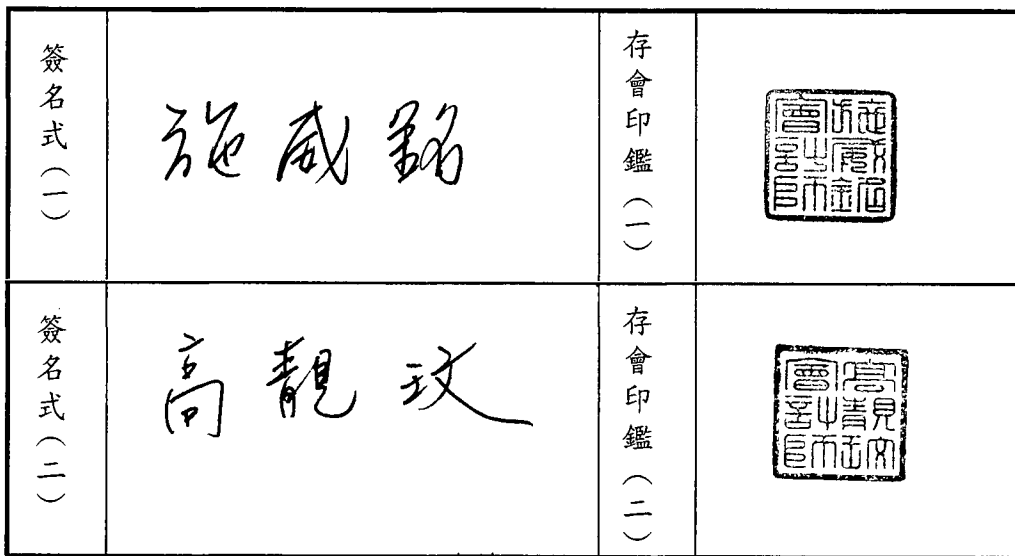 簽名式（一）
施威銘
存會印鑑（一）
施威銘會計師
簽名式（二）
高靚玟
存會印鑑（二）
高靚玟會計師